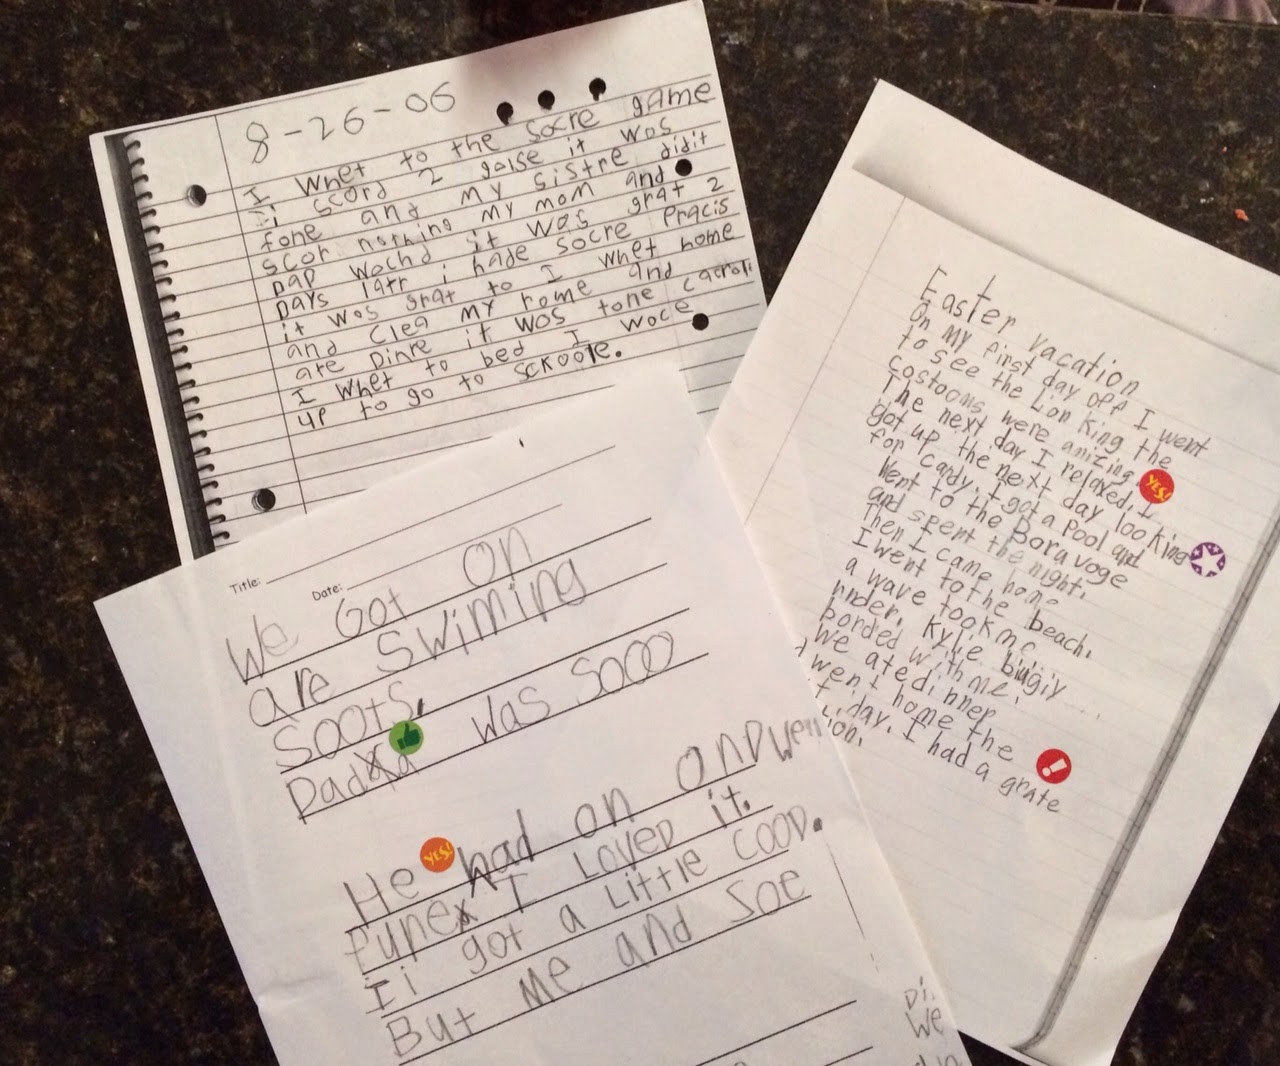 8-26-06
I whet to the socre game
i scord 2 golse it wos
fone and my sistre didit
scor nothing my mom and
dad wachd it was grat 2
days latr i hade socre Pracis
it wos grat to I whet home
and clea my rome and
are Dinre it wos tone cacroli
I whet to bed I woce
up to go to sckoole.
Title:
Date:
We Got on
are Swiming
Soots.
Dad was sooo
He YES! had on
funex I Loved it.
Ii got a Little coop.
But me and Soe
and wen
Di.
We
Easter vacation
On my first day off I went
to see the Lion King the
costooms were amizing.
The next day I relaxed. I YES!
got up the next day looking
for candy. I got a Pool and
Went to the Boravoge
and spent the night.
Then I came home
I went to the beach.
a wave took me
under. Kylie bugiy
borded with me.
We ate dinner
went home the
day. I had a grate
ion.